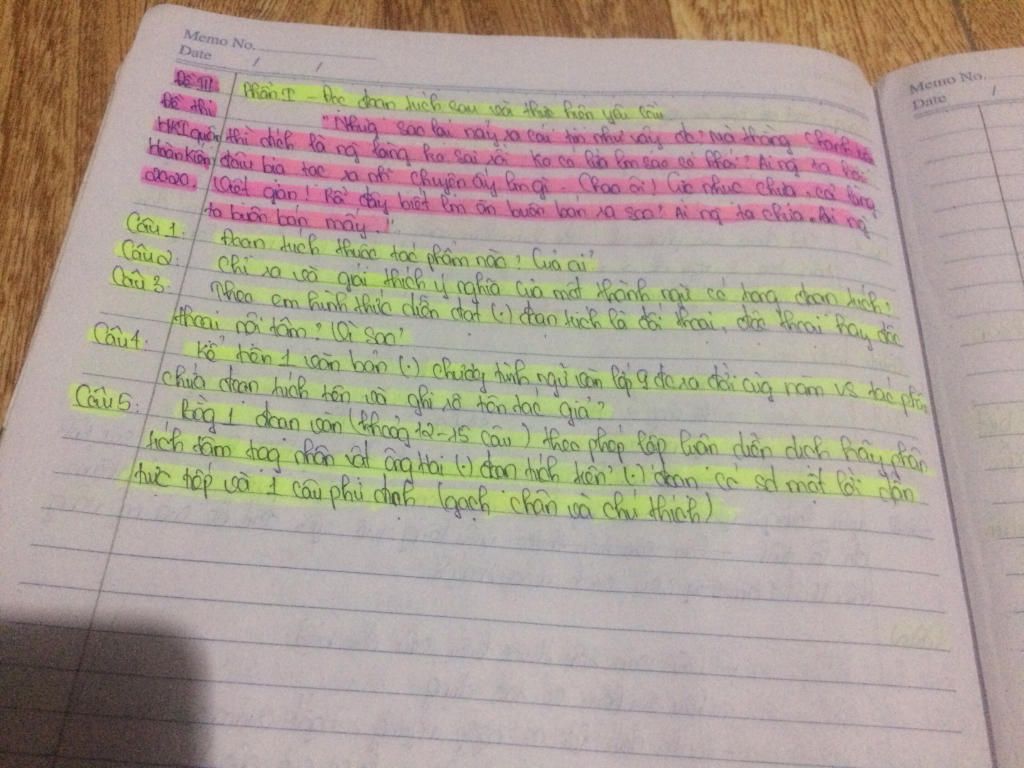 Memo No.
Date / /
Memo No.
Date /
Phần I - Đọc đoạn trích sau và thực hiện yêu cầu
Đề thi "Nhưng sao lại nảy ra cái tin như vậy đc? Mà thằng chánh
HKI quận thì đích là ng làng ko sai rồi. Ko có lửa lm sao có khói? Ai ng ta
Hoàn Kiếm đâu bịa tạc ra những chuyện ấy lm gì. Chao ôi! Cực nhục chưa, cả làng
2020. Việt gian! Rồi đây biết lm ăn buôn bán ra sao? Ai ng ta chứa. Ai ng
ta buôn bán mấy."
Câu 1: Đoạn trích thuộc tác phẩm nào? Của ai?
Câu 2: Chỉ ra và giải thích ý nghĩa của một thành ngữ có trong đoạn trích?
Câu 3: Theo em hình thức diễn đạt (.) đoạn trích là đối thoại, độc thoại hay độc
thoại nội tâm? Vì sao?
Câu 4: Kể tên 1 văn bản (.) chương trình ngữ văn lớp 9 đc ra đời cùng năm vs tác phẩm
chứa đoạn trích trên và ghi rõ tên tác giả?
Câu 5: Bằng 1 đoạn văn (khoảng 12-15 câu) theo phép lập luận diễn dịch hãy phân
tích tâm trạng nhân vật ông Hai (.) đoạn trích trên? (.) đoạn có sd một lời dẫn
trực tiếp và 1 câu phủ định (gạch chân và chú thích)